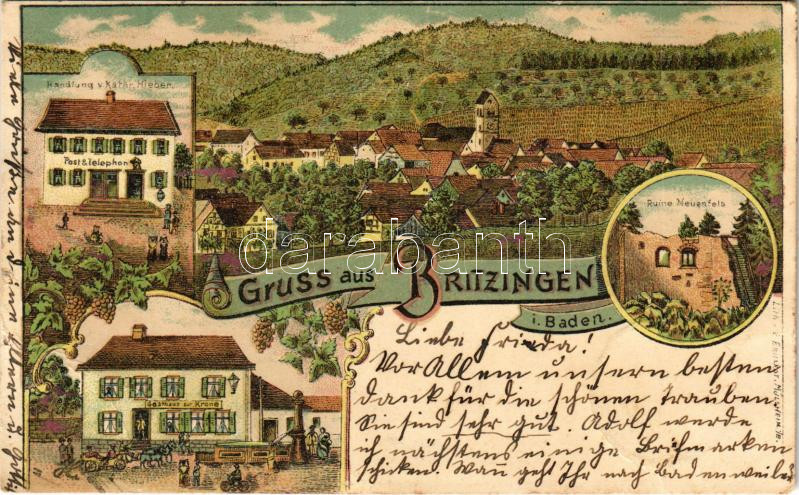 Handlung v. Kathr. Hieber.
Post & Telephon
Ruine Neuenfels
darabanth.com
Gruss aus Britzingen
i. Baden.
Gasthaus zur Krone
Liebe Frieda!
Vor Allem unsern besten
dank für die schönen Trauben
Sie sind sehr gut. Adolf werde
ich nächstens einige Briefmarken
schicken. Wann geht Ihr nach Badenweiler
Viele Grüsse an Deine